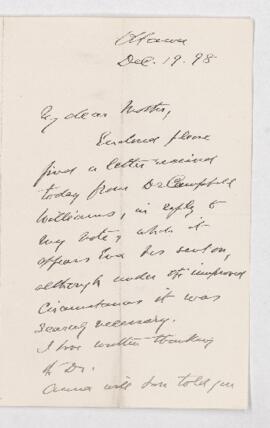 Ottawa
Dec. 19. 98
My dear Mother,
Enclosed please
find a letter received
today from Dr Campbell
Williams, in reply to
my note, which it
appears his
although under the improved
circumstances it was
scarcely necessary.
I have written thanking
the Dr.
Anna will have told you